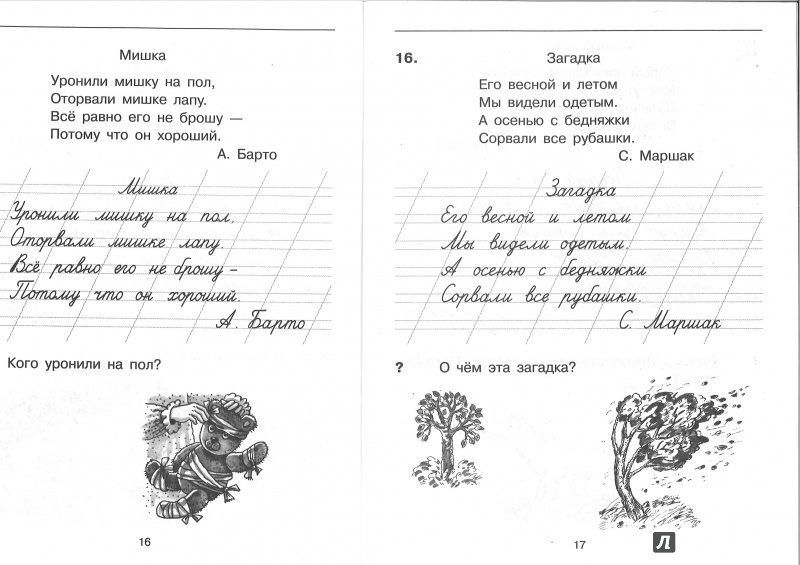 Мишка
Уронили мишку на пол,
Оторвали мишке лапу.
Всё равно его не брошу —
Потому что он хороший.
А. Барто
Мишка
Уронили мишку на пол,
Оторвали мишке лапу.
Всё равно его не брошу –
Потому что он хороший.
А. Барто
Кого уронили на пол?
16
16. Загадка
Его весной и летом
Мы видели одетым.
А осенью с бедняжки
Сорвали все рубашки.
С. Маршак
Загадка
Его весной и летом
Мы видели одетым.
А осенью с бедняжки
Сорвали все рубашки.
С. Маршак
? О чём эта загадка?
17
Л